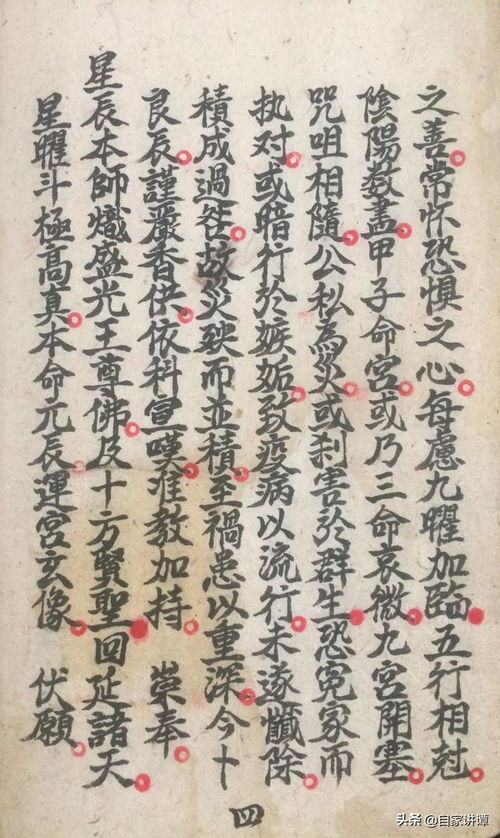 之善常怀恐惧之心每慮九曜加臨五行相尅
陰陽数盡甲子命宫或乃三命衰微九宫閉塞
咒咀相隨公私為災或刹害於群生恐冤家而
执对或暗行於嫉妬致疫病以流行未遂懺除
積成過咎故災殃而並積至禍患以重深今卜
良辰謹嚴香供依科宣嘆准教加持 崇奉
星辰本師熾盛光王尊佛及十方賢聖回延諸天
星曜斗極高真本命元辰運宫玄像 伏願
四
头条 @自家讲谭